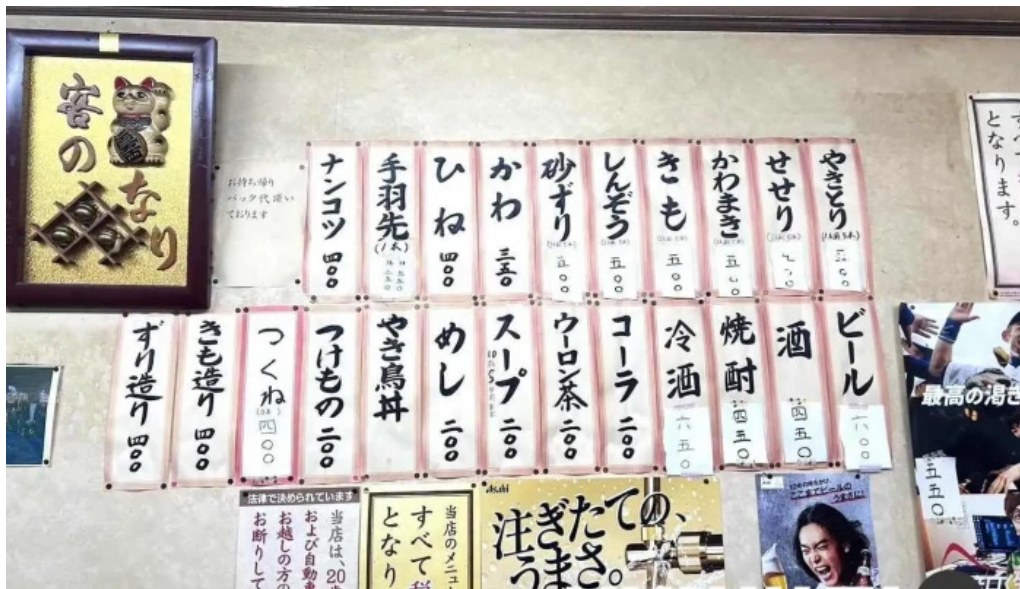 客の
なり
お持ち帰り
パック代頂い
ております
やきとり
せせり
かわまき 五〇〇
きも 五〇〇
しんぞう 五〇〇
砂ずり 五〇〇
かわ 三五〇
ひね 四〇〇
手羽先(1本)
ナンコツ 四〇〇
ビール 六〇〇
酒 四五〇
焼酎 四五〇
冷酒 六五〇
コーラ 二〇〇
ウーロン茶 二〇〇
スープ 二〇〇
めし 二〇〇
やき鳥丼
つけもの 二〇〇
つくね 四〇〇
きも造り 四〇〇
ずり造り 四〇〇
となります。
最高の渇き
五五〇
法律で決められています
当店は、20
および自動車
お越しの方の
お断りして
当店のメニュ
すべて税
となり
Asahi
注ぎたての、
うまさ。
ここまでビールの
うまさに!